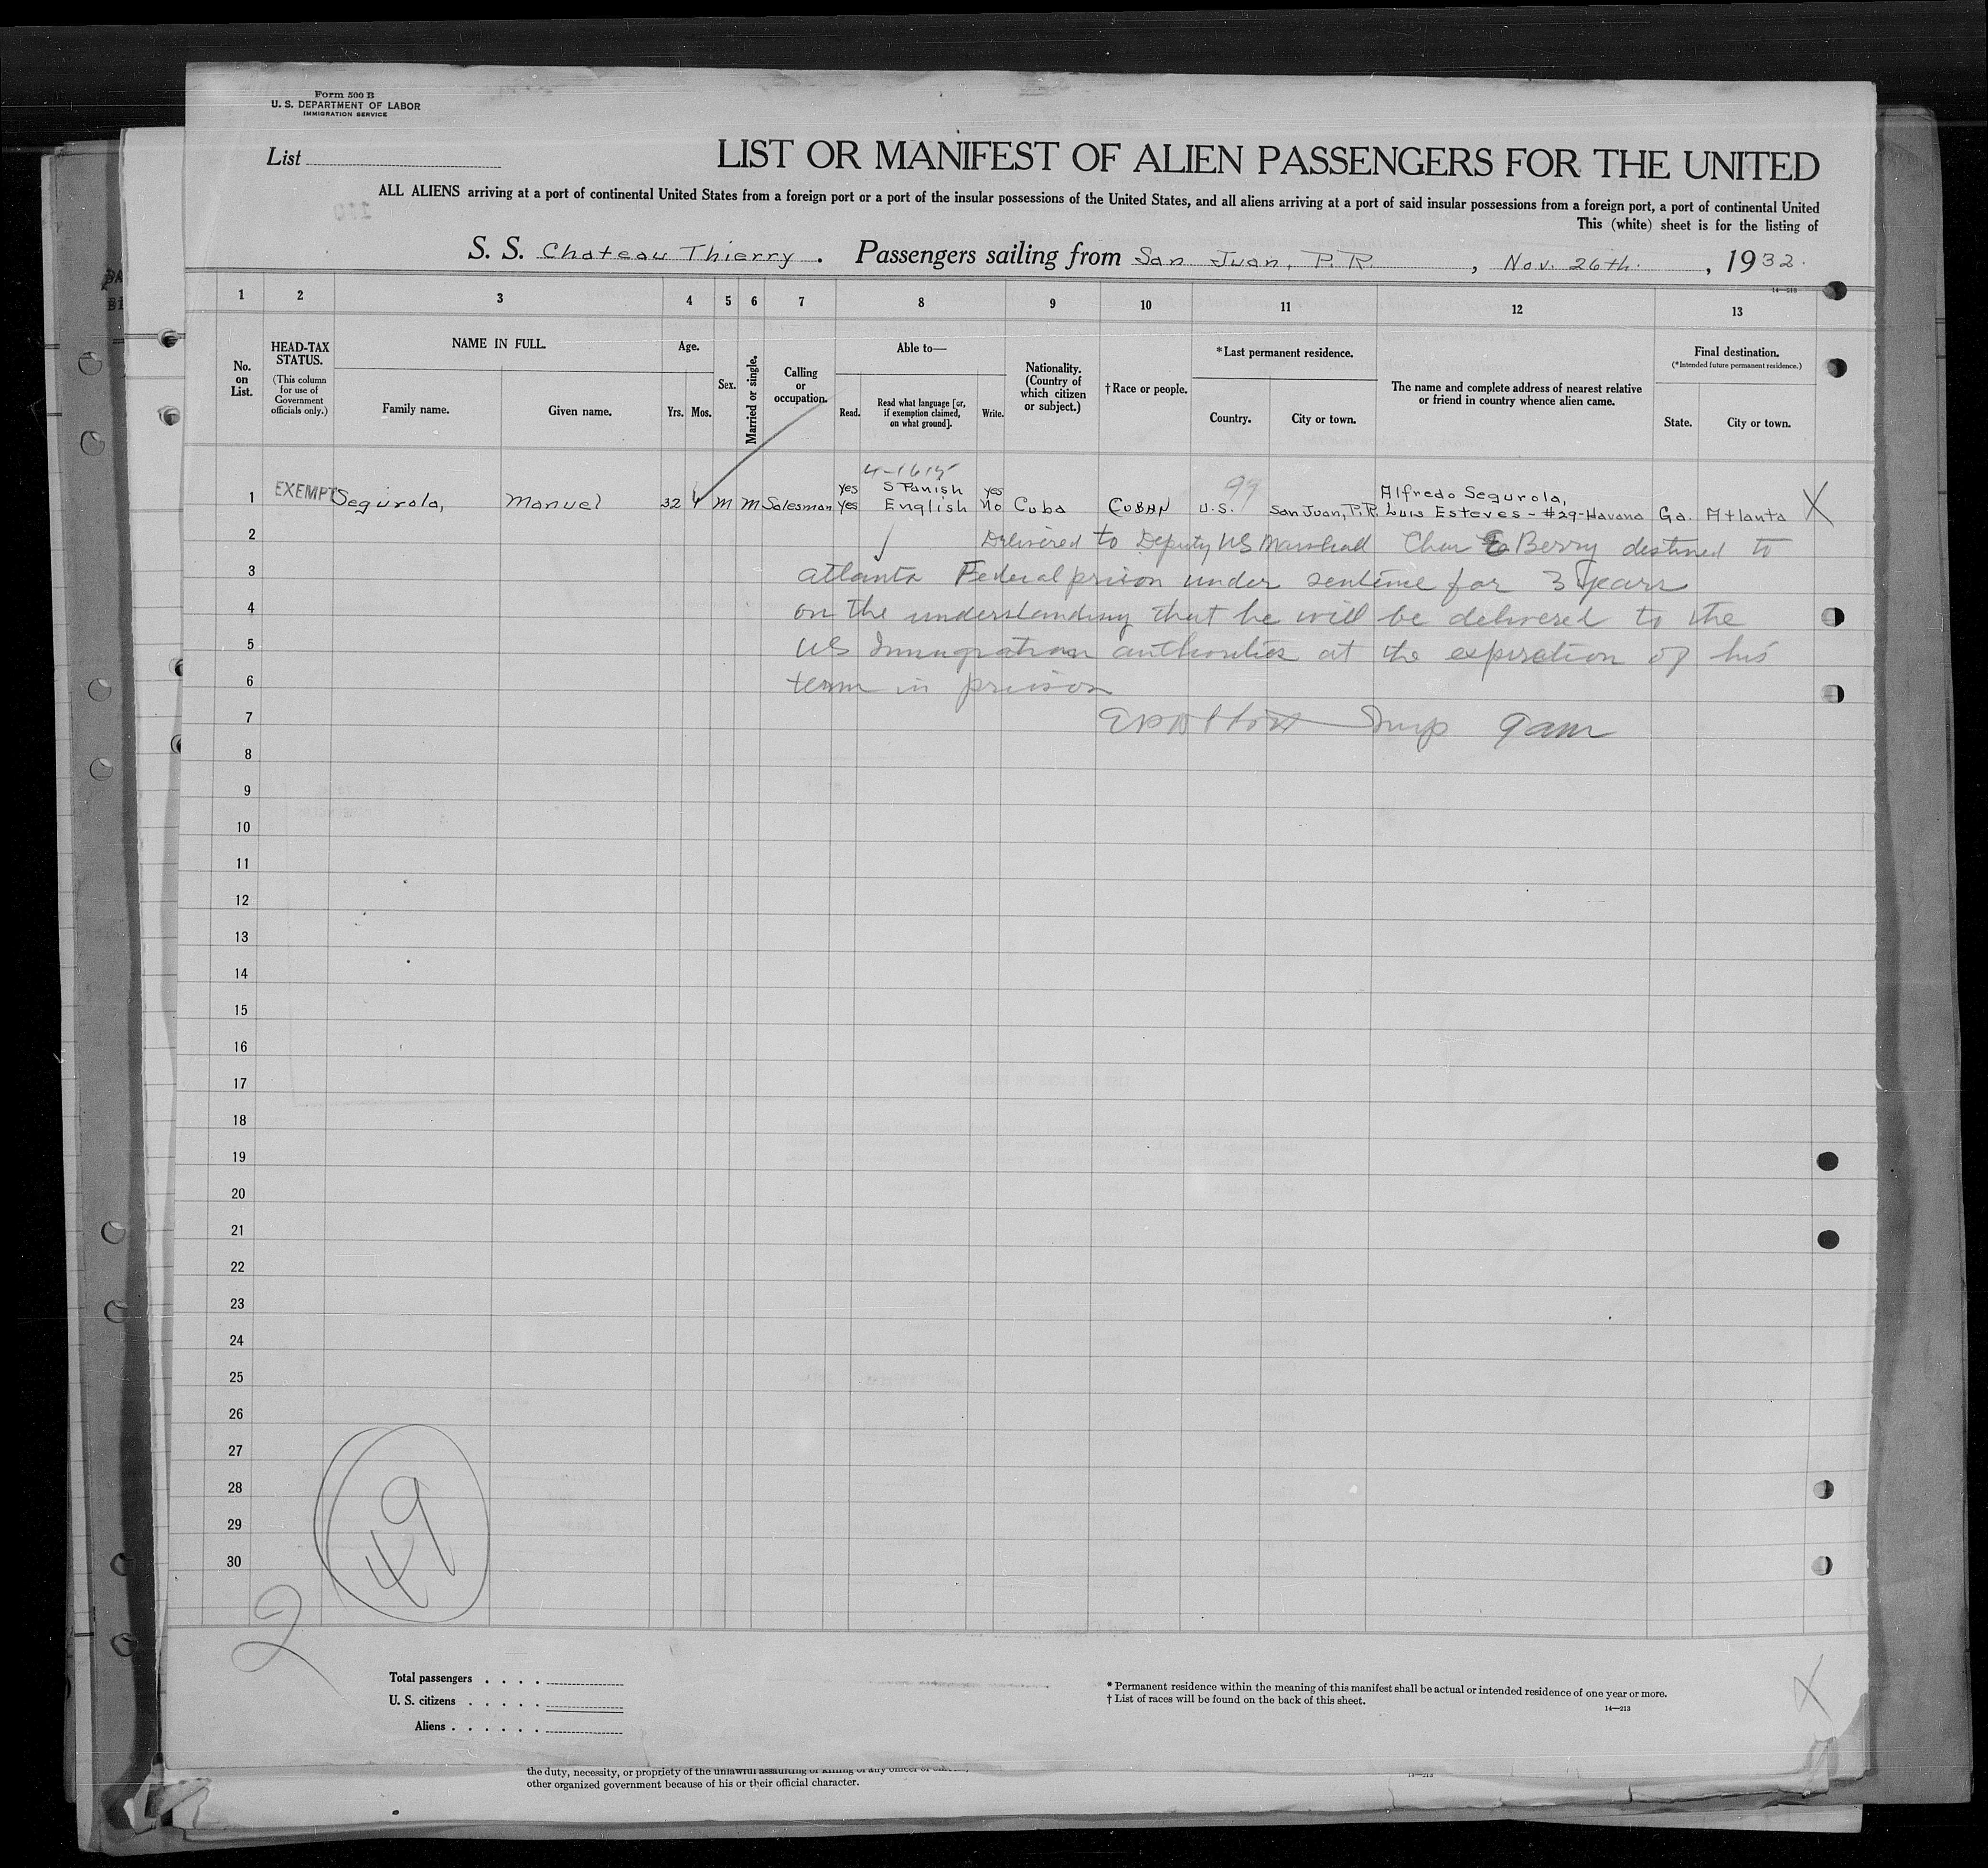 Form 500 B
U. S. DEPARTMENT OF LABOR
IMMIGRATION SERVICE
List
LIST OR MANIFEST OF ALIEN PASSENGERS FOR THE UNITED
ALL ALIENS arriving at a port of continental United States from a foreign port or a port of the insular possessions of the United States, and all aliens arriving at a port of said insular possessions from a foreign port, a port of continental United
This (white) sheet is for the listing of
S. S. Chateau Thierry . Passengers sailing from San Juan, P.R. , Nov. 26th. , 1932.
14—213
1 2 3 4 5 6 7 8 9 10 11 12 13
No. on List.
HEAD-TAX STATUS.
(This column for use of Government officials only.)
NAME IN FULL.
Family name.
Given name.
Age.
Yrs. Mos.
Sex.
Married or single.
Calling or occupation.
Able to—
Read.
Read what language [or, if exemption claimed, on what ground].
Write.
Nationality. (Country of which citizen or subject.)
†Race or people.
*Last permanent residence.
Country.
City or town.
The name and complete address of nearest relative or friend in country whence alien came.
Final destination.
(*Intended future permanent residence.)
State.
City or town.
4-1615 99
yes Spanish yes Alfredo Segurola,
1 EXEMPT Segurola, Manuel 32 4 M M Salesman yes English No Cuba CUBAN U.S. San Juan, P.R. Luis Esteves - #29-Havana Ga. Atlanta X
2 Delivered to Deputy US Marshall Chas E Berry destined to
3 Atlanta Federal prison under sentence for 3 years
4 on the understanding that he will be delivered to the
5 US Immigration authorities at the expiration of his
6 term in prison
7 Insp 9am
8
9
10
11
12
13
14
15
16
17
18
19
20
21
22
23
24
25
26
27
28
29
30
49
2
Total passengers . . . .
U. S. citizens . . . . .
Aliens . . . . . .
* Permanent residence within the meaning of this manifest shall be actual or intended residence of one year or more.
† List of races will be found on the back of this sheet.
14—213
X
the duty, necessity, or propriety of the unlawful assaulting or killing of any officer
other organized government because of his or their official character.